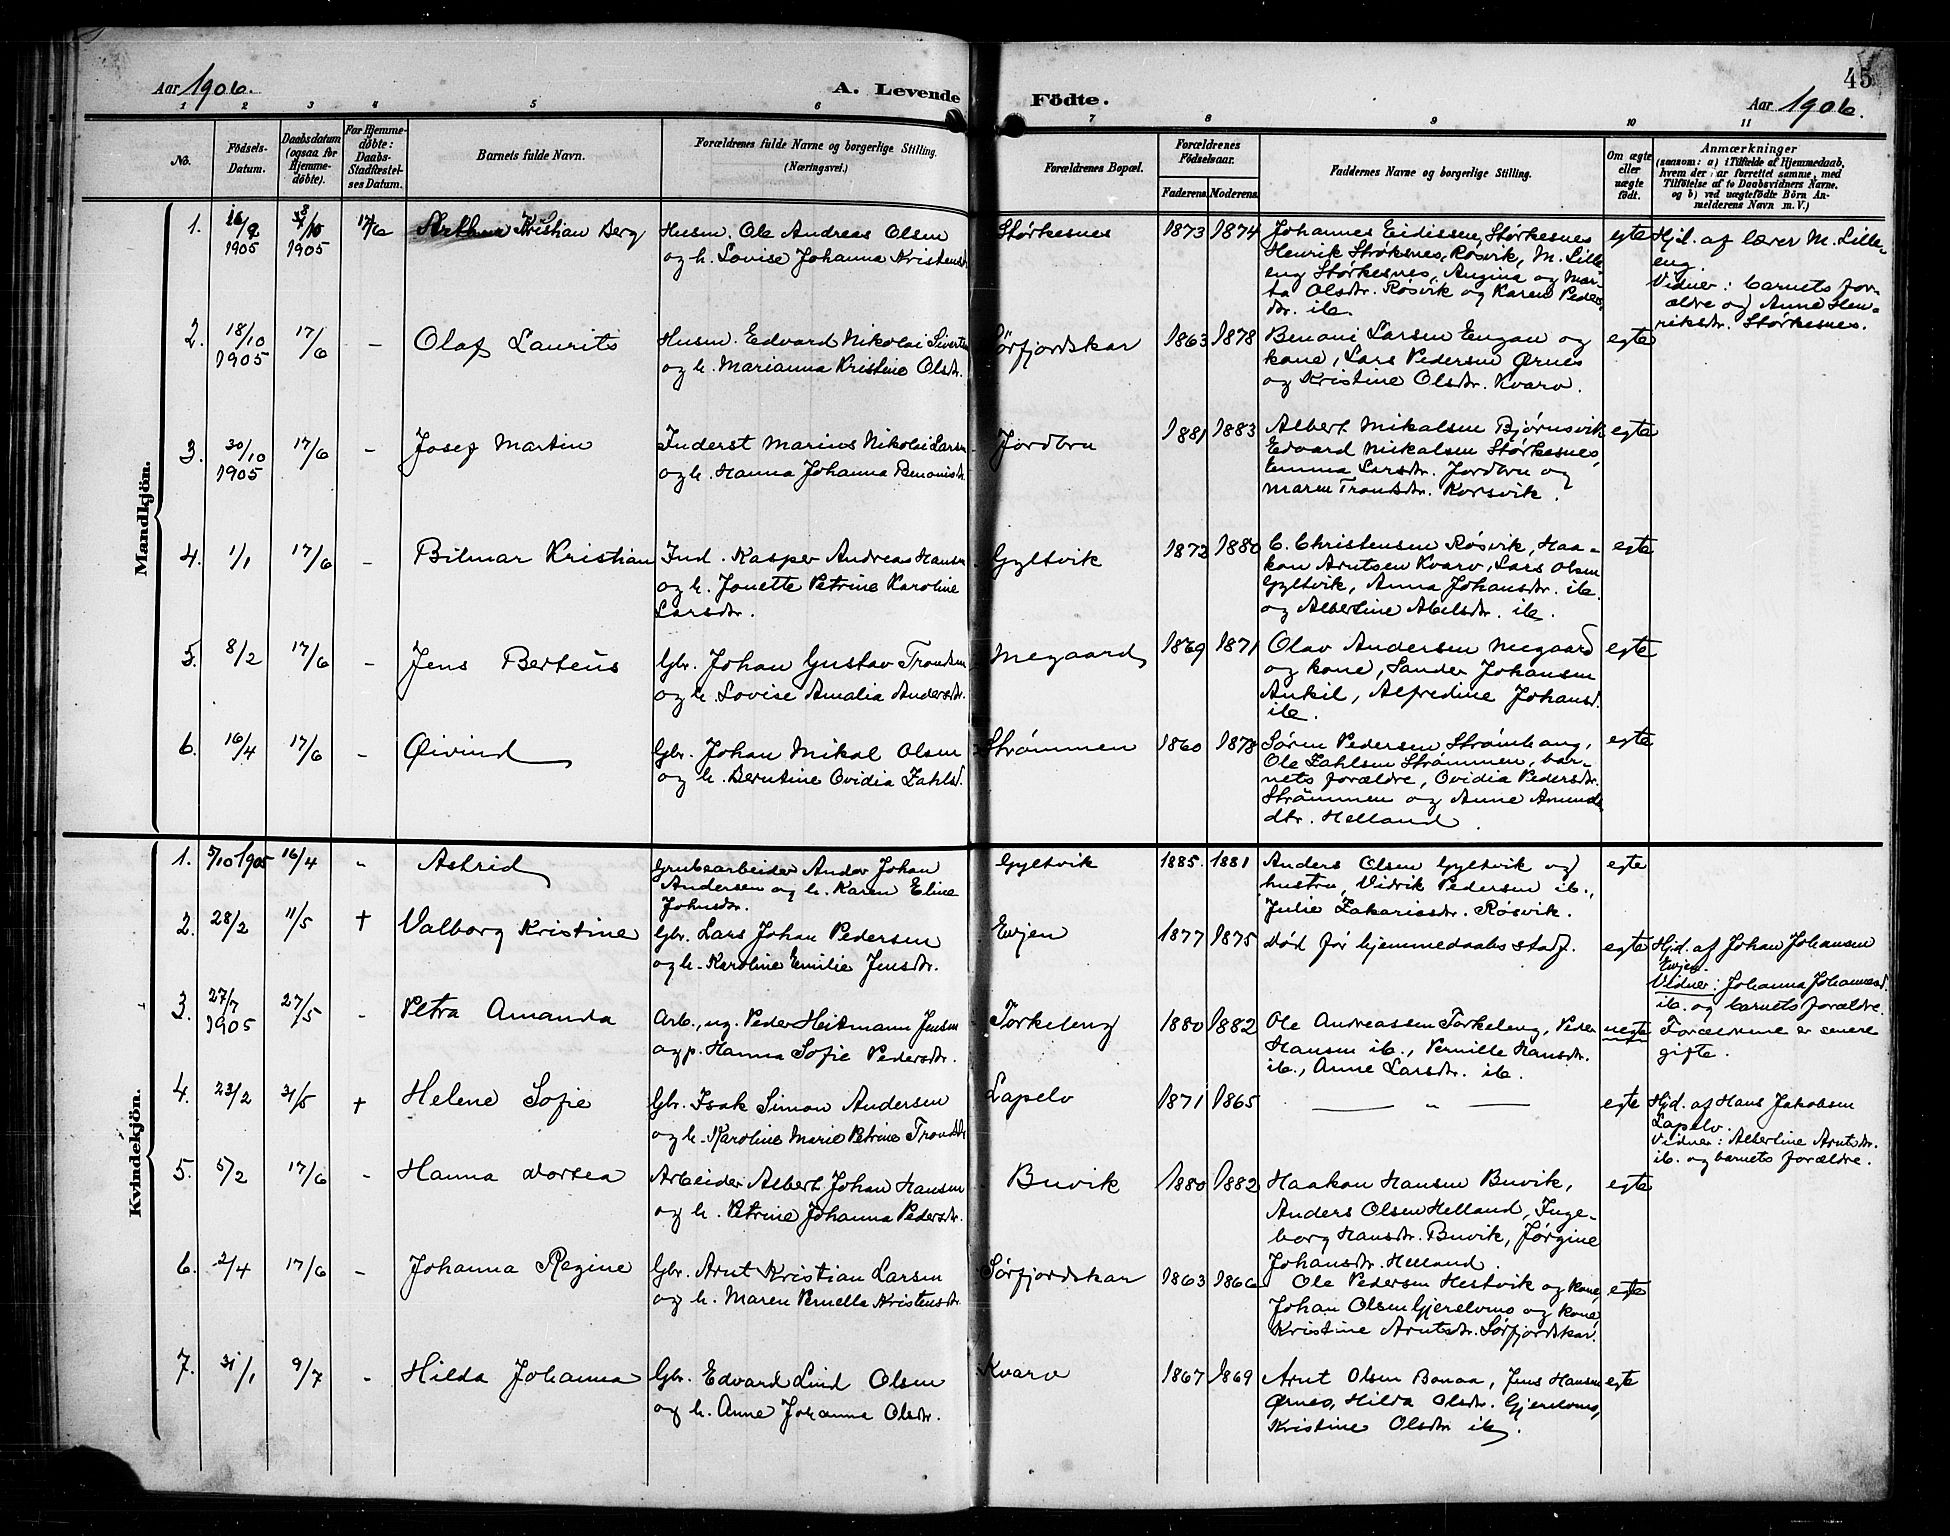 45
Aar 1906.
A. Levende Födte.
Aar 1906.
1 2 3 4 5 6 7 8 9 10 11
No.
Födsels-Datum.
Daabsdatum (ogsaa for Hjemme-döbte).
For Hjemme-döbte: Daabs-Stadfæstel-ses Datum.
Barnets fulde Navn.
Forældrenes fulde Navne og borgerlige Stilling.
(Næringsvei.)
Forældrenes Bopæl.
Forældrenes Födselsaar.
Faderens. Moderens.
Faddernes Navne og borgerlige Stilling.
Om ægte eller uægte födt.
Anmærkninger
(saasom: a) i Tilfælde af Hjemmedaab,
hvem der har forrettet samme, med
Tilföielse af to Daabsvidners Navne,
og b) ved uægtefödte Börn An-
melderens Navn m. V.)
Mandkjön.
1. 1905 1905 17/6 Kristian Berg
Husm. Ole Andreas Olsen
og h. Lovise Johanna Kristensdtr
Størkesnes 1873 1874
Johannes Eidissen, Størkesnes
Henrik Strøksnes, Røsvik, M. Lille-
eng Størkesnes, Angina og Mar-
ta Olsdtr. Røsvik og Karen Peders
dtr. ib.
egte
Hjd. af lærer M. Lille-
eng.
Vidner: barnets for-
ældre og Anne Hen-
riksdtr. Størkesnes.
2. 18/10 1905 17/6 - Olaf Laurits
Husm. Edvard Nikolai Sivertsen
og h. Marianna Kristine Olsdtr.
Sørfjordskar 1863 1878
Benoni Larsen Engan og
kone, Lars Pedersen Ørnes
og Kristine Olsdtr. Kvarv.
egte
3. 30/10 1905 17/6 - Josef Martin
Inderst Marius Nikolai Larsen
og h. Hanna Johanna Benonisdtr
Jordbru 1881 1883
Albert Mikalsen Bjørnsvik
Edvard Mikalsen Størkesnes,
Emma Larsdtr. Jordbru og
Maren Trondsdtr. Korsvik.
egte
4. 1/1 17/6 - Bilmar Kristian
Ind. Kasper Andreas Hansen
og h. Jonette Petrine Karoline
Larsdtr.
Gyltvik 1872 1880
C. Christensen Røsvik, Haa-
kon Arntsen Kvarv, Lars Olsen
Gyltvik, Anna Johansdtr. ib.
og Albertine Abelsdtr. ib.
egte
5. 8/2 17/6 - Jens Berteus
Gbr. Johan Gustav Trondsen
og h. Lovise Amalia Andersdtr.
Megaard 1869 1871
Olav Andersen Megaard
og kone, Sander Johansen
Ankil, Alfredine Johansd.
ib.
egte
6. 16/4 17/6 - Øivind
Gbr. Johan Mikal Olsen
og h. Berntine Ovidia Zahlsd.
Strømmen 1860 1878
Søren Pedersen Strømhaug,
Ole Zahlsen Strømmen, bar-
nets forældre, Ovidia Pedersdtr.
Strømmen og Anne Amunds
dtr. Helland
egte
Kvindekjön.
1. 5/10 1905 16/4 - Astrid
Grubearbeider Andor Johan
Andersen og h. Karen Eline
Johnsdtr.
Gyltvik 1885. 1881
Anders Olsen Gyltvik og
hustru, Vidrik Pedersen ib.,
Julie Zakariasdtr. Røsvik.
egte
2. 28/2 11/5 + Valborg Kristine
Gbr. Lars Johan Pedersen
og h. Karoline Emilie Jensdtr.
Evjen 1877 1875
Død før hjemmedaabs stadf.
egte
Hjd. af Johan Johansen
Evjen.
Vidner: Johanna Johannesd.
ib. og barnets forældre.
3. 27/7 1905 27/5 - Petra Amanda
Arb., ug. Peder Heitmann Jensen
og p. Hanna Sofie Pedersdtr.
Torkeleng 1880 1882
Ole Andreassen Torkeleng, Peder
Hansen ib., Pernille Hansdtr.
ib., Anne Larsdtr. ib.
uegte
Forældrene er senere
gifte.
4. 23/2 31/5 + Helene Sofie
Gbr. Isak Simon Andersen
og h. Karoline Marie Petrine Trondsdtr
Lapelv 1871 1865
— „ —
egte
Hjd. af Hans Jakobsen
Lapelv.
Vidner: Albertine Arntsdtr.
ib. og barnets forældre.
5. 5/2 17/6 - Hanna Dortea
Arbeider Albert Johan Hansen
og h. Petrine Johanna Pedersdtr.
Buvik 1880 1882
Haakon Hansen Buvik,
Anders Olsen Helland, Inge-
borg Hansdtr. Buvik, Jørgine
Johansdtr. Helland.
egte
6. 2/4 17/6 - Johanna Regine
Gbr. Arnt Kristian Larsen
og h. Maren Pernella Kristensdtr.
Sørfjordskar 1863 1866
Ole Pedersen Hestvik og kone,
Johan Olsen Gjerelvmo og kone,
Kristine Arntsdtr. Sørfjordskar.
egte
7. 31/1 9/7 - Hilda Johanna
Gbr. Edvard Lind Olsen
og h. Anne Johanna Olsdtr.
Kvarv 1867 1869
Arnt Olsen Bonaa, Jens Hansen
Ørnes, Hilda Olsdtr. Gjerelvmo,
Kristine Olsdtr ib.
egte